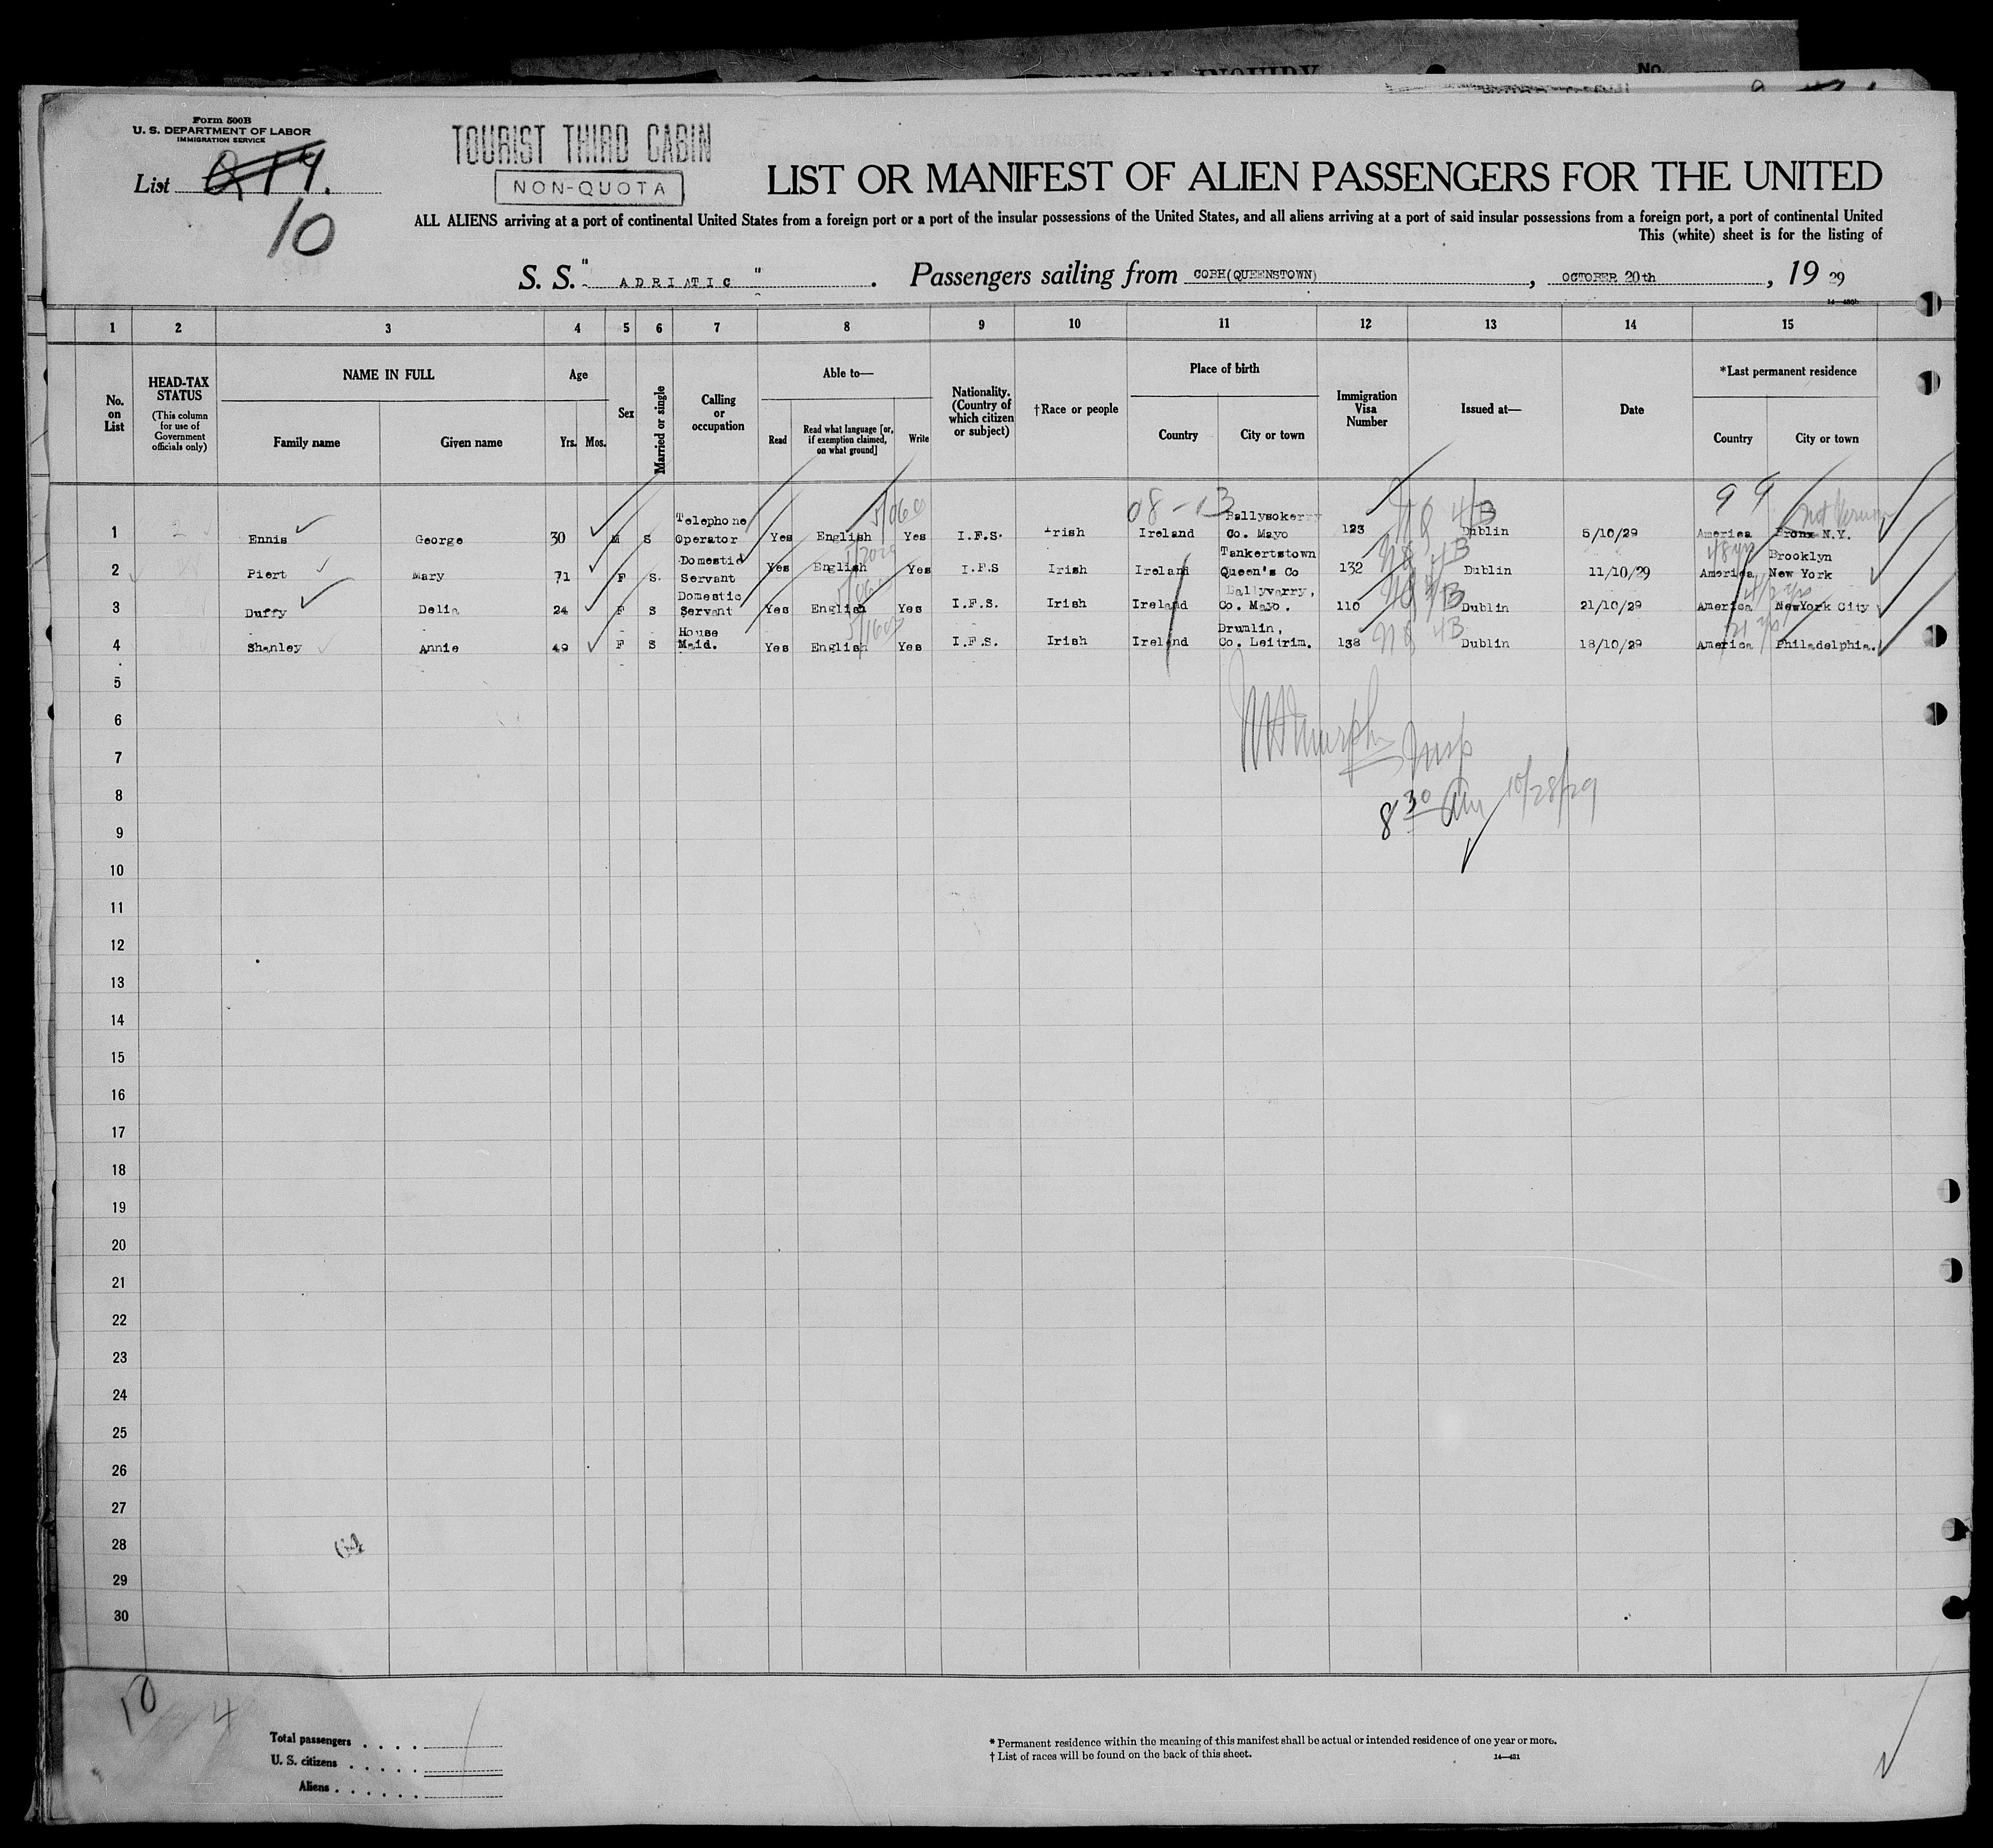 SPECIAL INQUIRY
No.
Form 500B
U. S. DEPARTMENT OF LABOR
IMMIGRATION SERVICE
List
10
TOURIST THIRD CABIN
NON-QUOTA
LIST OR MANIFEST OF ALIEN PASSENGERS FOR THE UNITED
ALL ALIENS arriving at a port of continental United States from a foreign port or a port of the insular possessions of the United States, and all aliens arriving at a port of said insular possessions from a foreign port, a port of continental United
This (white) sheet is for the listing of
S. S. " ADRIATIC " . Passengers sailing from COBH(QUEENSTOWN) , OCTOBER 20th , 19 29
1 2 3 4 5 6 7 8 9 10 11 12 13 14 15
No. on List
HEAD-TAX STATUS
(This column for use of Government officials only)
NAME IN FULL
Family name
Given name
Age
Yrs. Mos.
Sex
Married or single
Calling or occupation
Able to—
Read
Read what language [or, if exemption claimed, on what ground]
Write
Nationality. (Country of which citizen or subject)
†Race or people
Place of birth
Country
City or town
Immigration Visa Number
Issued at—
Date
*Last permanent residence
Country
City or town
08-13
99
1 Ennis George 30 M S Telephone Operator Yes English Yes I.F.S. Irish Ireland Ballysokerry Co. Mayo 123 Dublin 5/10/29 America Bronx N.Y.
2 Piert Mary 71 F S. Domestic Servant Yes English Yes I.F.S Irish Ireland Tankertstown Queen's Co 132 Dublin 11/10/29 America Brooklyn New York
3 Duffy Delia 24 F S Domestic Servant Yes English Yes I.F.S. Irish Ireland Ballyvarry, Co. Mayo. 110 Dublin 21/10/29 America NewYork City
4 Shanley Annie 49 F S House Maid. Yes English Yes I.F.S. Irish Ireland Drumlin, Co. Leitrim. 138 Dublin 18/10/29 America Philadelphia.
5
6
7
8
8 30 am 10/28/29
9
10
11
12
13
14
15
16
17
18
19
20
21
22
23
24
25
26
27
28
29
30
10
4
Total passengers . . . .
U. S. citizens . . . . .
Aliens . . . . . .
* Permanent residence within the meaning of this manifest shall be actual or intended residence of one year or more.
† List of races will be found on the back of this sheet.
14—431